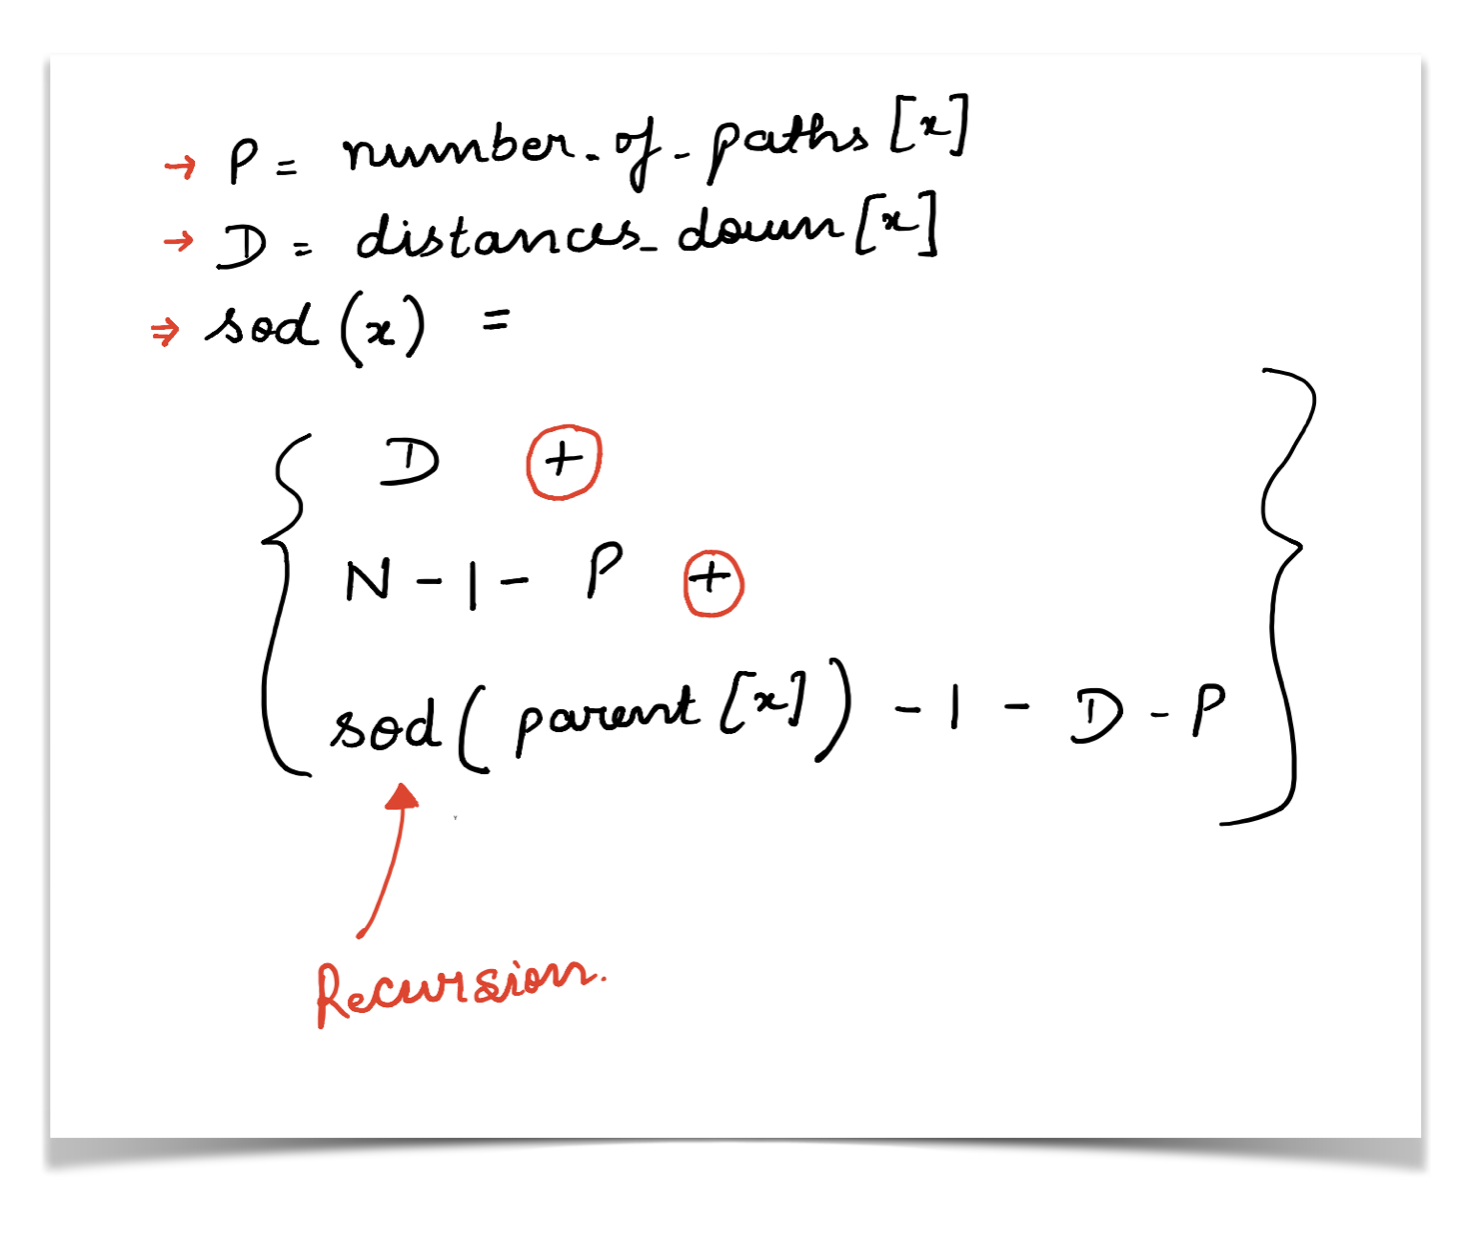 → P = number_of_paths[x]
→ D = distances_down[x]
⇒ sod(x) =
{ D +
N - 1 - P +
sod(parent[x]) - 1 - D - P }
Recursion.